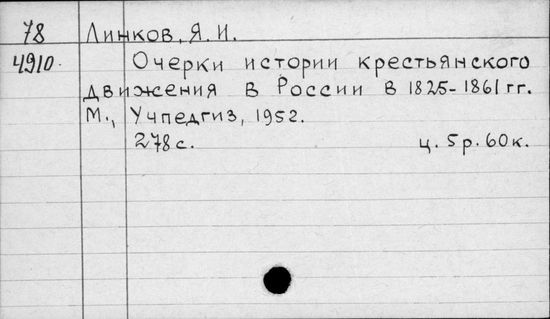 78 Линков, Я. И.
4910. Очерки истории крестьянского
движения в России в 1825-1861 гг.
М., Учпедгиз, 1952.
278 с. ц. 5 р. 60 к.